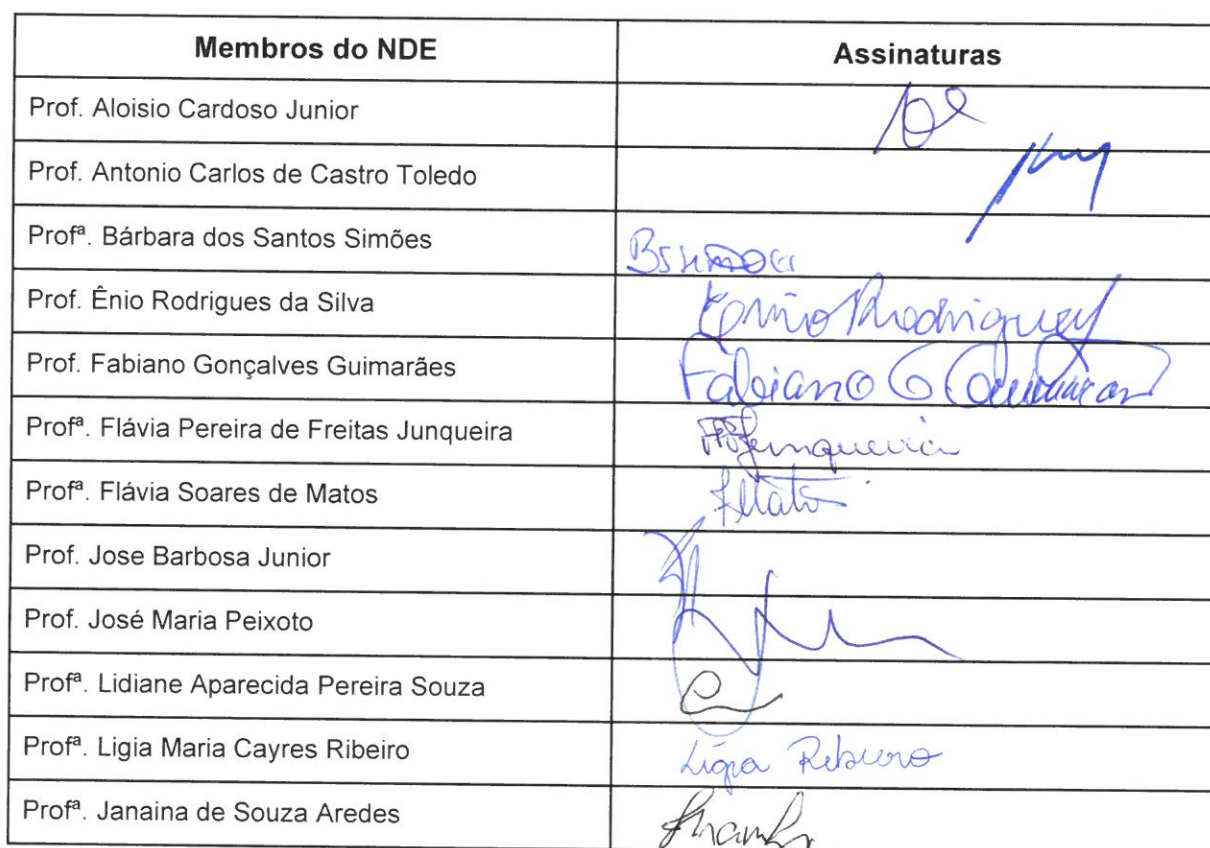 Membros do NDE Assinaturas
Prof. Aloisio Cardoso Junior
Prof. Antonio Carlos de Castro Toledo
Profª. Bárbara dos Santos Simões
Prof. Ênio Rodrigues da Silva Ênio Rodrigues
Prof. Fabiano Gonçalves Guimarães Fabiano G Guimarães
Profª. Flávia Pereira de Freitas Junqueira FPFJunqueira
Profª. Flávia Soares de Matos
Prof. Jose Barbosa Junior
Prof. José Maria Peixoto
Profª. Lidiane Aparecida Pereira Souza
Profª. Ligia Maria Cayres Ribeiro Ligia Ribeiro
Profª. Janaina de Souza Aredes